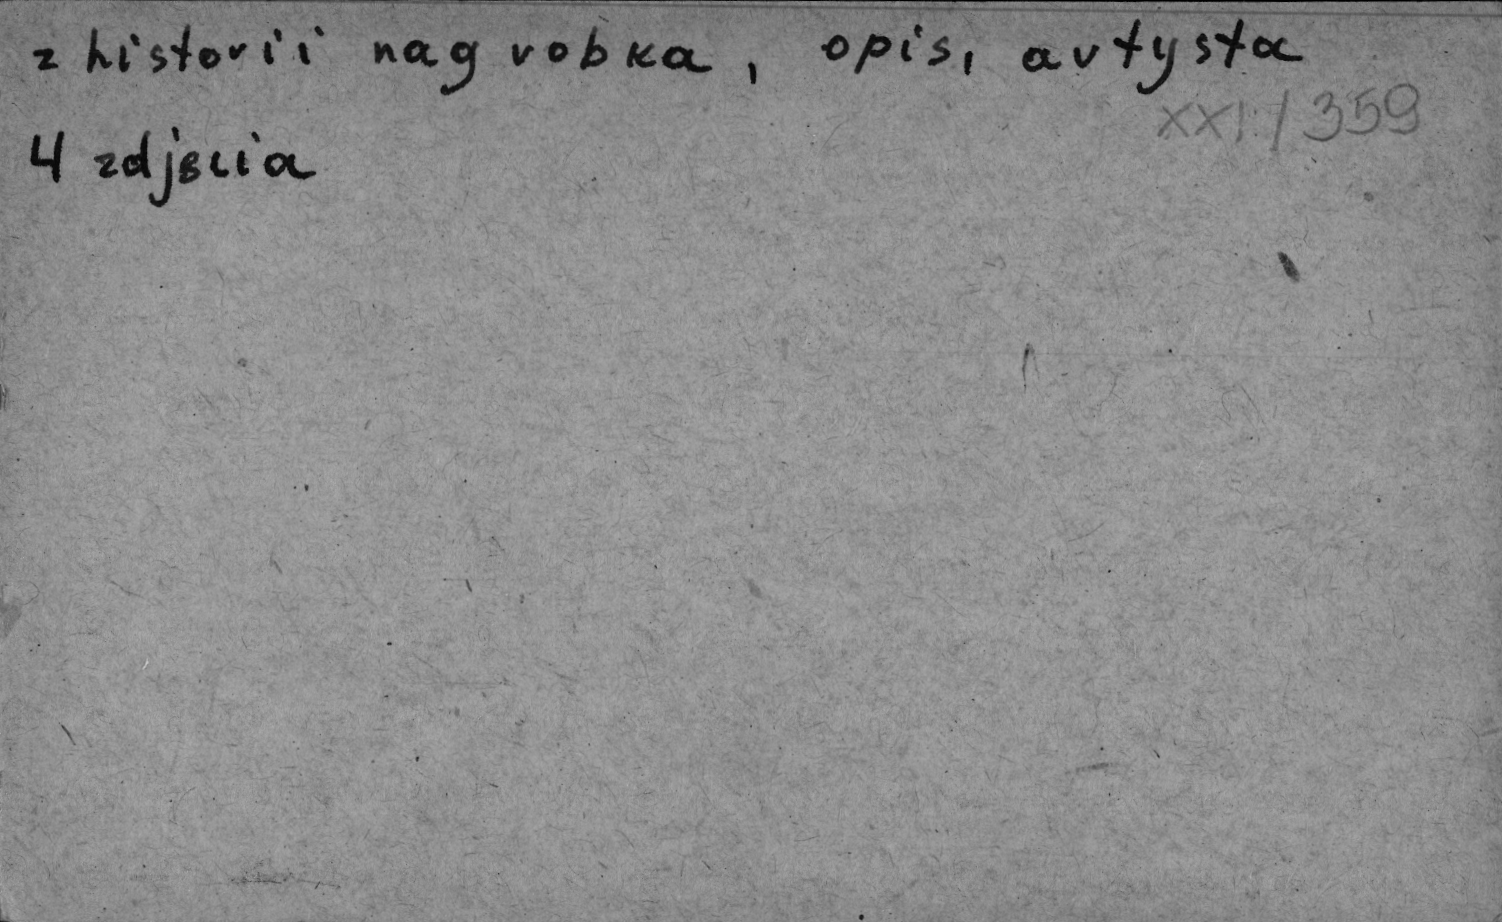 z historii nagrobka, opis, artysta
XXI/359
4 zdjęcia